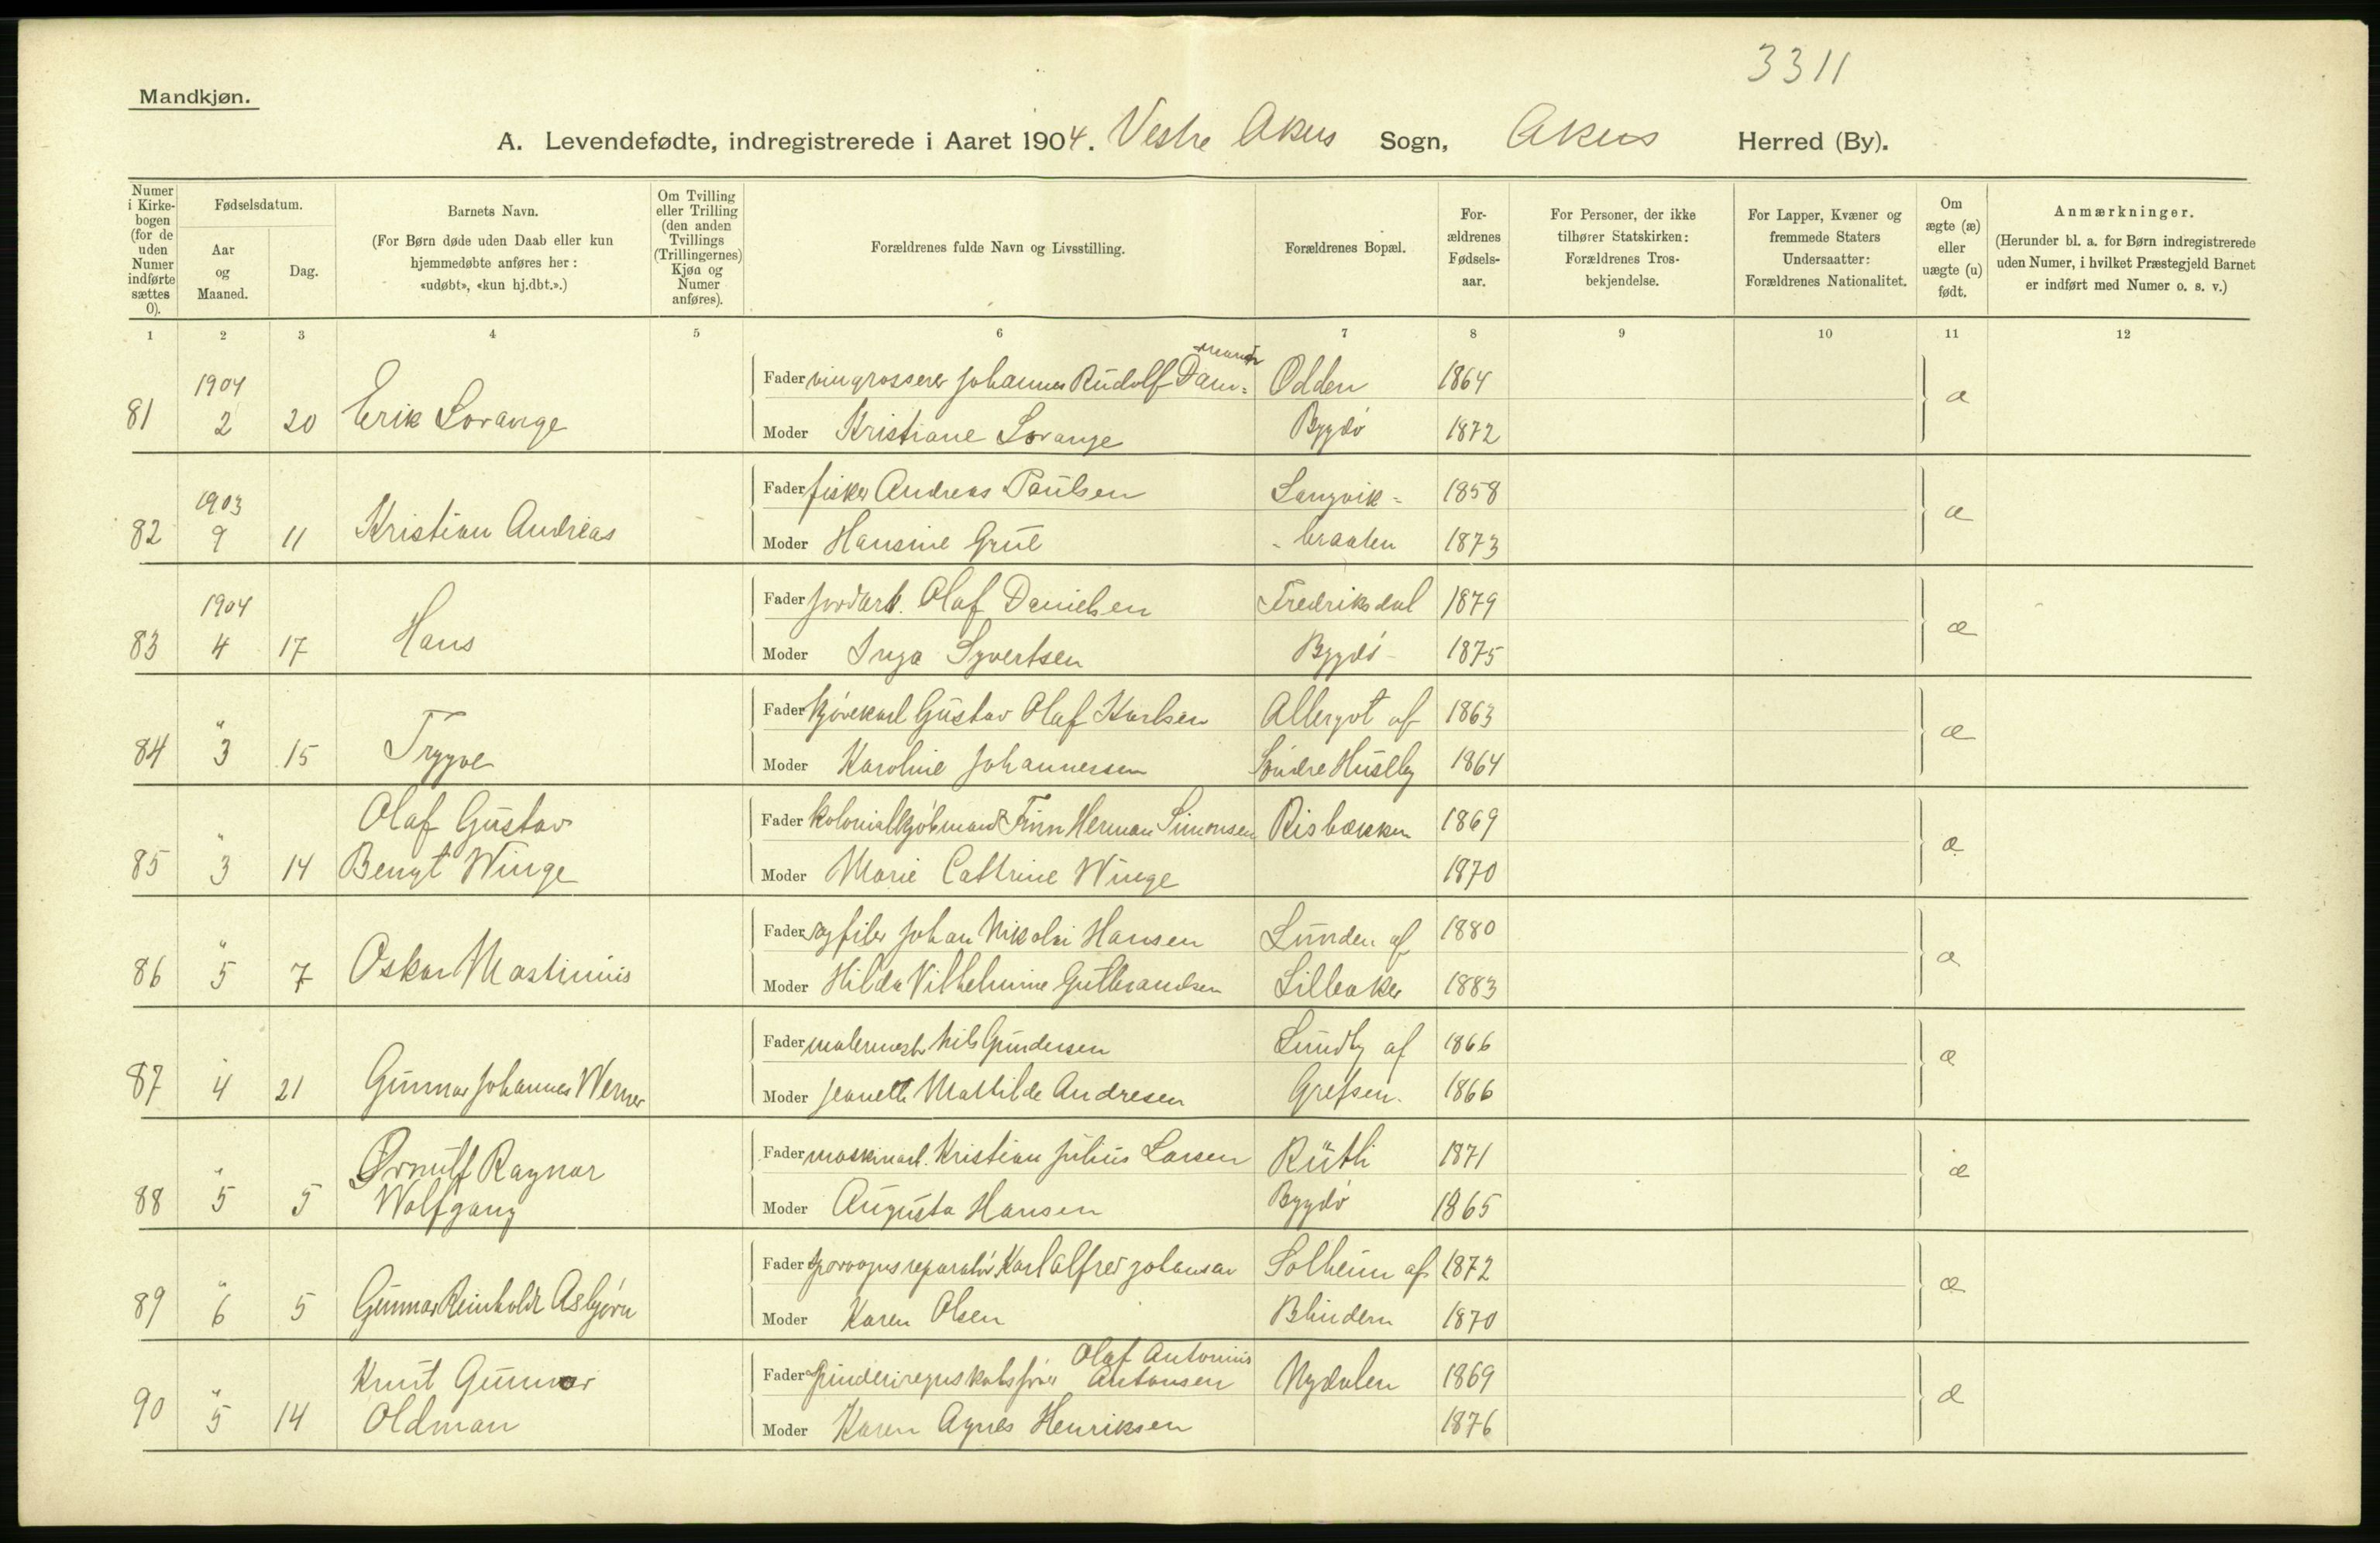 3311
Mandkjøn.
A. Levendefødte, indregistrerede i Aaret 1904. Vestre Akers Sogn, Akers Herred (By).
Numer i Kirkebogen (for de uden Numer indførte sættes 0).
Fødselsdatum.
Aar og Maaned.
Dag.
Barnets Navn.
(For Børn døde uden Daab eller kun hjemmedøbte anføres her: «udøbt», «kun hj.dbt.».)
Om Tvilling eller Trilling (den anden Tvillings (Trillingernes) Kjøn og Numer anføres).
Forældrenes fulde Navn og Livsstilling.
Forældrenes Bopæl.
Forældrenes Fødselsaar.
For Personer, der ikke tilhører Statskirken: Forældrenes Trosbekjendelse.
For Lapper, Kvæner og fremmede Staters Undersaatter: Forældrenes Nationalitet.
Om ægte (æ) eller uægte (u) født.
Anmærkninger.
(Herunder bl. a. for Børn indregistrerede uden Numer, i hvilket Præstegjeld Barnet er indført med Numer o. s. v.)
1 2 3 4 5 6 7 8 9 10 11 12
81 1904 2 20 Erik Lorange
Fader vingrosserer Johannes Rudolf Dam= Odden 1864 æ
Moder Kristiane Lorange Bygdö 1872
82 1903 9 11 Kristian Andreas
Fader fisker Andreas Paulsen Langvik= 1858 æ
Moder Hansine Grue -braaten 1873
83 1904 4 17 Hans
Fader jordarb. Olaf Danielsen Fredriksdal 1879 æ
Moder Inga Syvertsen Bygdö 1875
84 " 3 15 Trygve
Fader kjörekarl Gustav Olaf Karlsen Allergot af 1863 æ
Moder Karoline Johannersen Söndre Huseby 1864
85 " 3 14 Olaf Gustav Bengt Winge
Fader kolonialkjöbmand Finn Herman Simonsen Risbækken 1869 æ
Moder Marie Cathrine Winge 1870
86 " 5 7 Oskar Martinius
Fader sagfiler Johan Nikolai Hansen Lunden af 1880 æ
Moder Hilda Vilhelmine Gulbrandsen Lilleaker 1883
87 " 4 21 Gunnar Johannes Werner
Fader malermester Nils Gundersen Lundby af 1866 æ
Moder Jeanette Mathilde Andresen Grefsen. 1866
88 " 5 5 Ørnulf Ragnar Wolfgang
Fader maskinarb. Kristian Julius Larsen Rütli 1871 æ
Moder Augusta Hansen Bygdö 1865
89 " 6 5 Gunnar Reinholdt Asbjörn
Fader sporvognsreparatör Karl Alfred Johansen Solheim af 1872 æ
Moder Karen Olsen Blindern 1870
90 " 5 14 Knut Gunnar Oldman
Fader spinderiregnskabsförer Olaf Antonius Antonsen Nydalen 1869 æ
Moder Karen Agnes Henriksen 1876